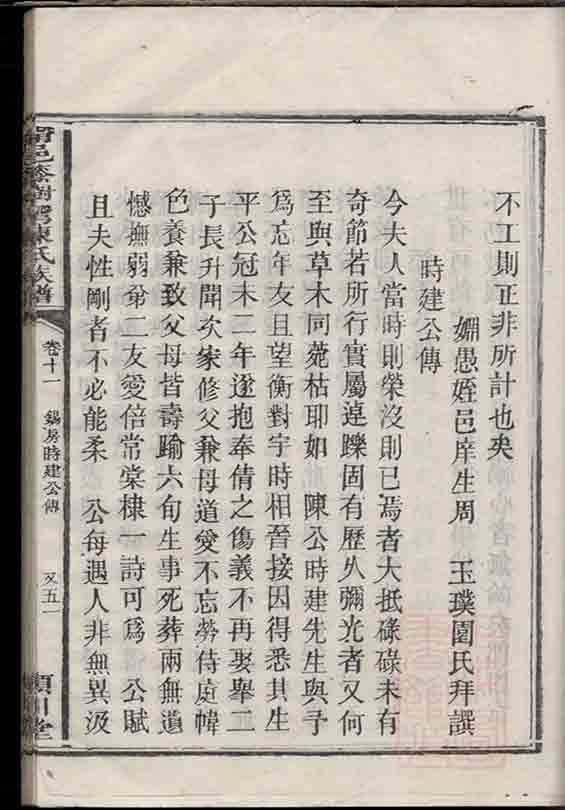 不工則正非所計也矣
姻愚姪邑庠生周 玉璞圍氏拜譔
時建公傳
今夫人當時則榮沒則已焉者大抵碌碌未有
奇節若所行實屬逴躒固有歷久彌光者又何
至與草木同菀枯耶如 陳公時建先生與予
爲忘年友且望衡對宇時相晉接因得悉其生
平公冠未二年遂抱奉倩之傷義不再娶舉二
子長升聞次 修父兼母道愛不忘勞侍庭幃
色養兼致父母皆壽踰六旬生事死葬兩無遺
憾撫弱弟二友愛倍常棠棣一詩可爲 公賦
且夫性剛者不必能柔 公每遇人非無異汲
邑 樹 陳氏族譜
卷十一
錫房時建公傳
又五一
川堂